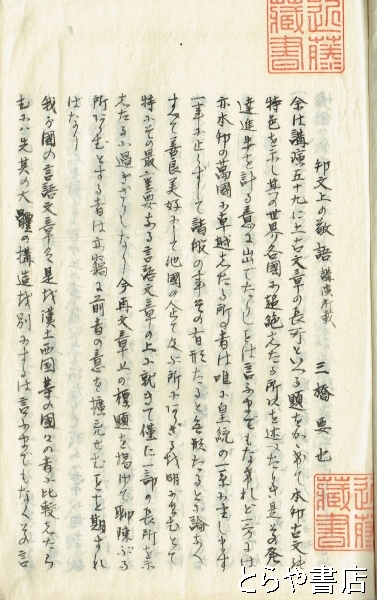 近藤藏書
邦文上の敬語 講演所載
三橋要也
余は講演五十九に上古文章の長所といへる題をかゝげて本邦古文の
特色を示し其の世界各國に超絶したる所以を述べたりき是その発
達進歩を計る意に出でたりしとは言ふまでもなけれど一方には
亦本邦の萬國に卓越したる所の者は唯に皇統の一事に止らず
一事に止らずして諸般の事その有形たると無形たるとに論なく
すべて善良美好にして他國の企て及ぶ所にあらざる
特にその最も重要なる言語文章の上に就きて僅に一部の長所を示
したるに過ぎざりしなり今再文章上の標題を掲げて聊陳ぶる
所あらむとする者は亦竊に前者の意を擴充せむことを期すれ
ばなり
我が國の言語文章を是を漢土西国等の國々の者に比較したら
むには先其の大體の構造を別にするは言ふまでもなくその言
近藤藏書
とらや書店